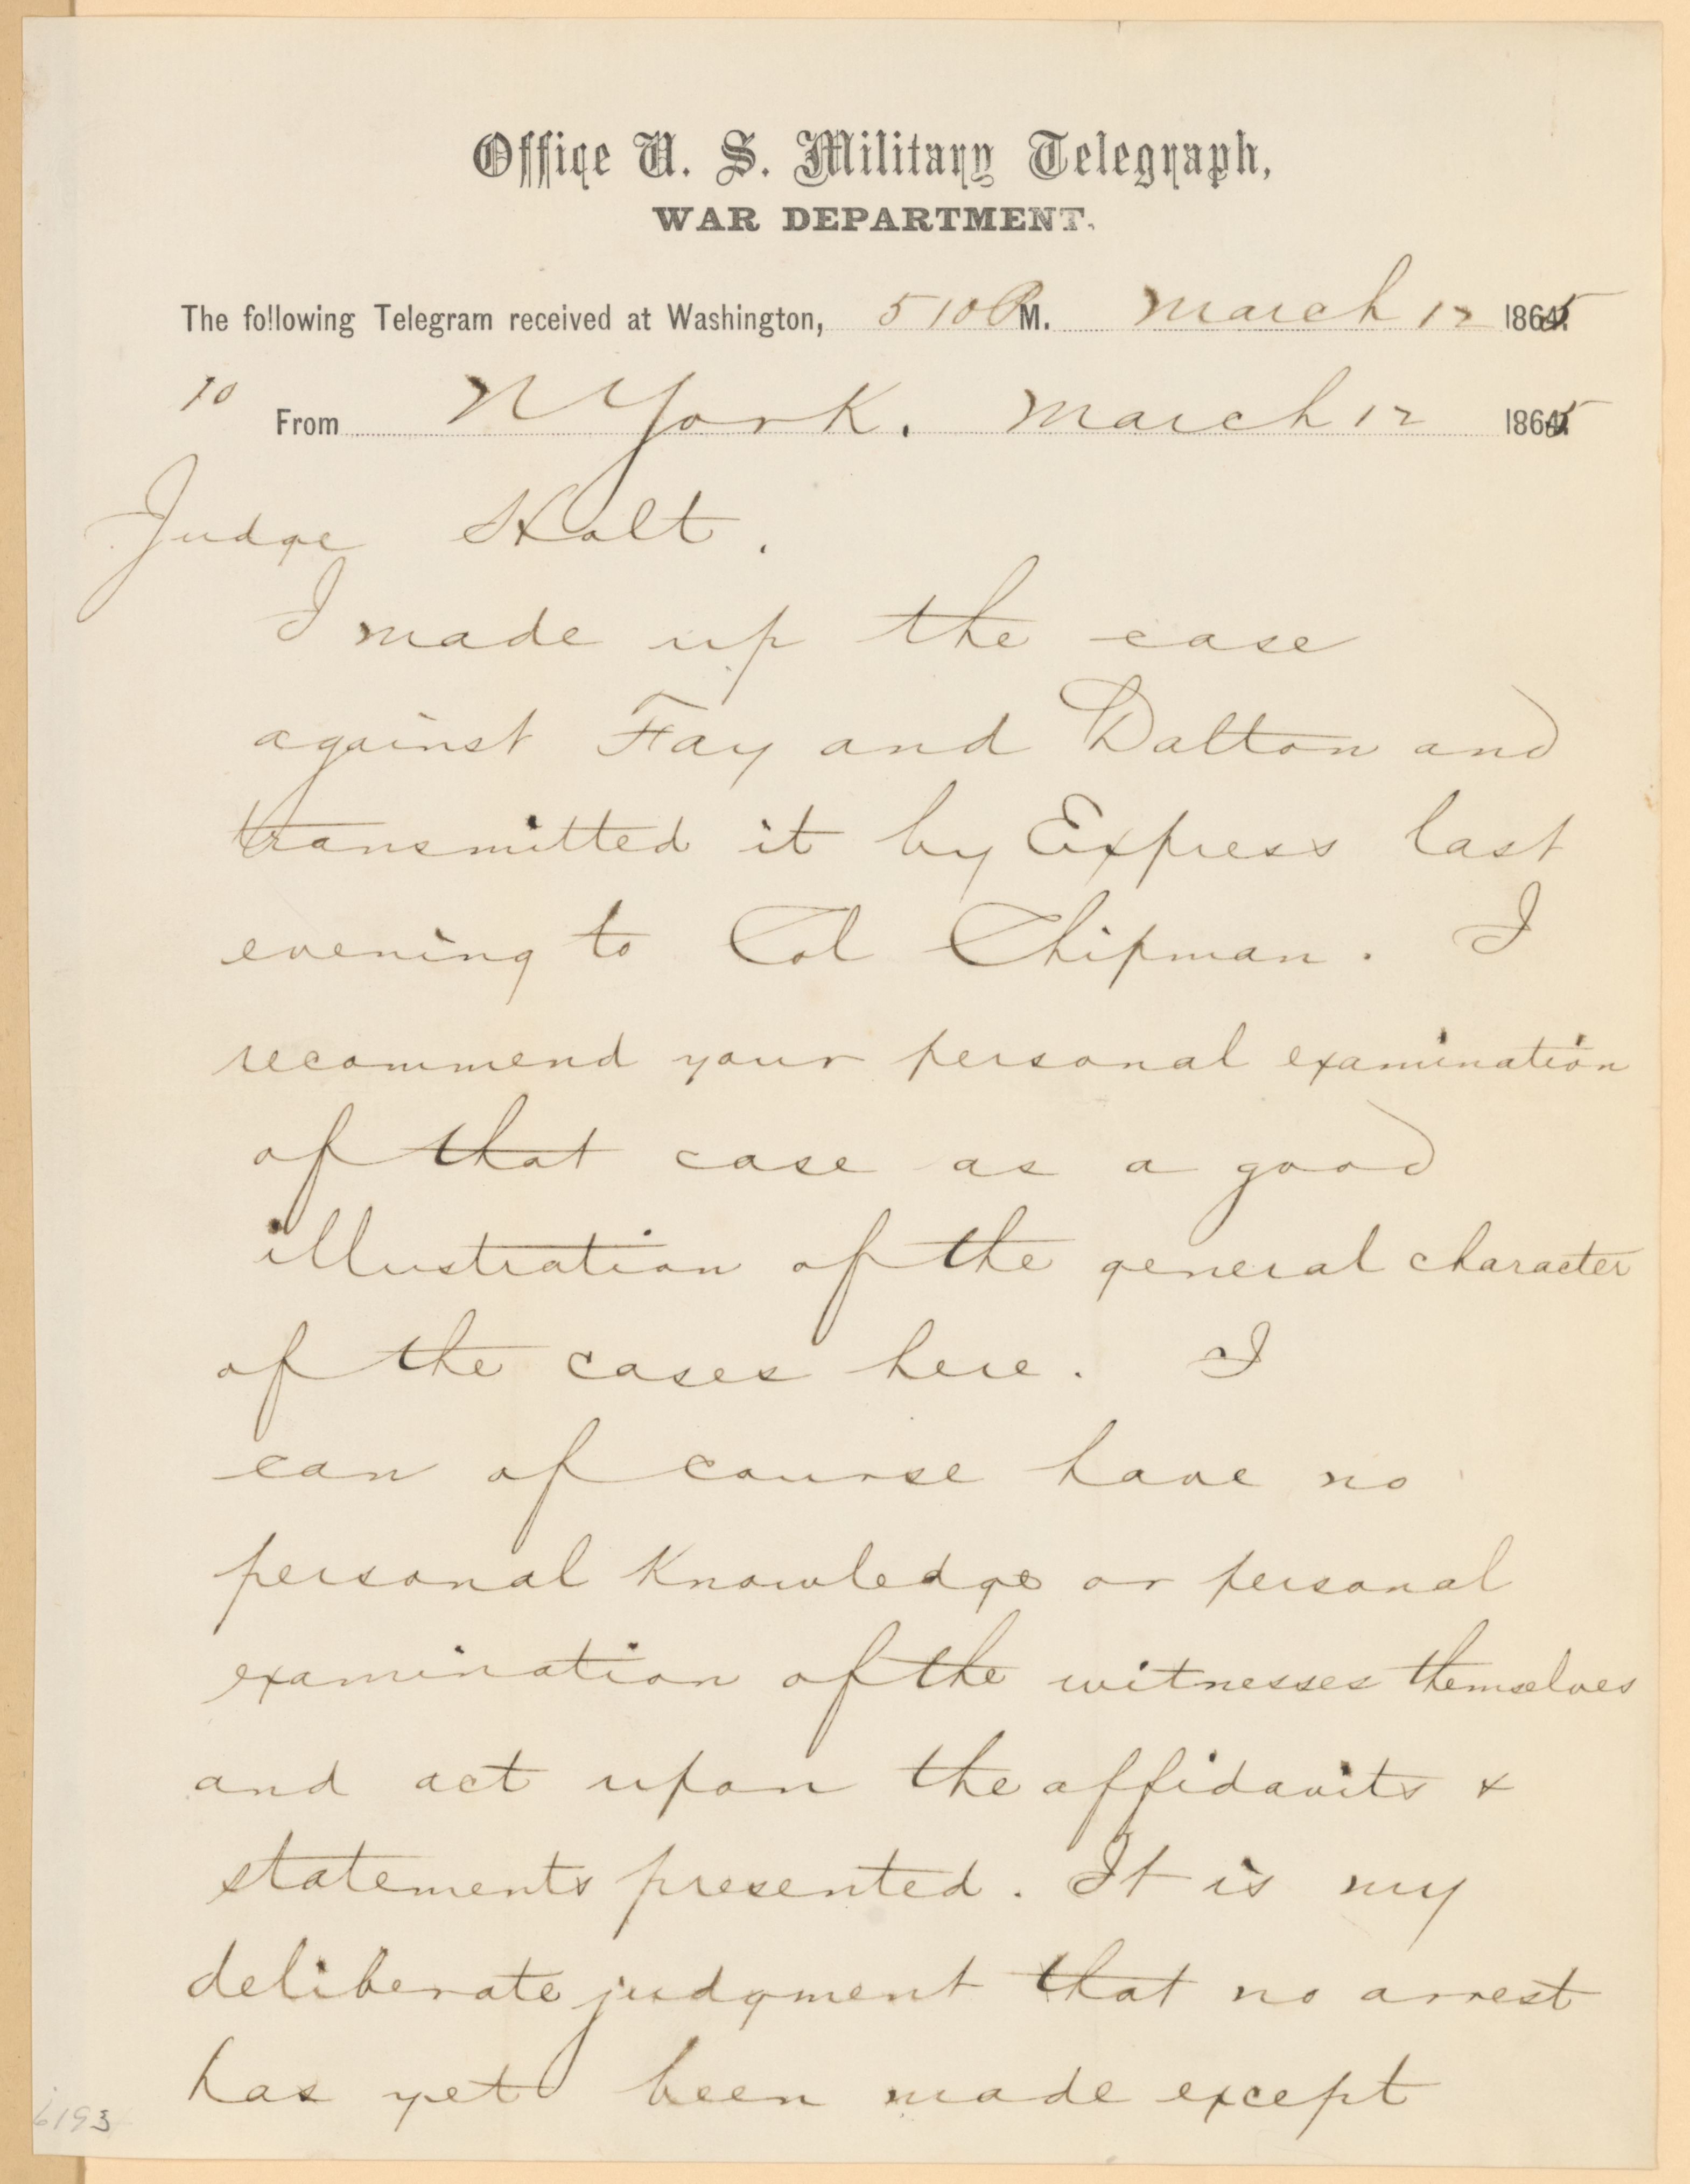 Office U. S. Military Telegraph,
WAR DEPARTMENT.
The following Telegram received at Washington, 5 10 P M. March 12 1865
10 From N York. March 12 1865
Judge Holt.
I made up the case
against Fay and Dalton and
transmitted it by Express last
evening to Col Chipman. I
recommend your personal examination
of that case as a good
illustration of the general character
of the cases here. I
can of course have no
personal knowledge or personal
examination of the witnesses themselves
and act upon the affidavits &
statements presented. It is my
deliberate judgment that no arrest
has yet been made except
6193